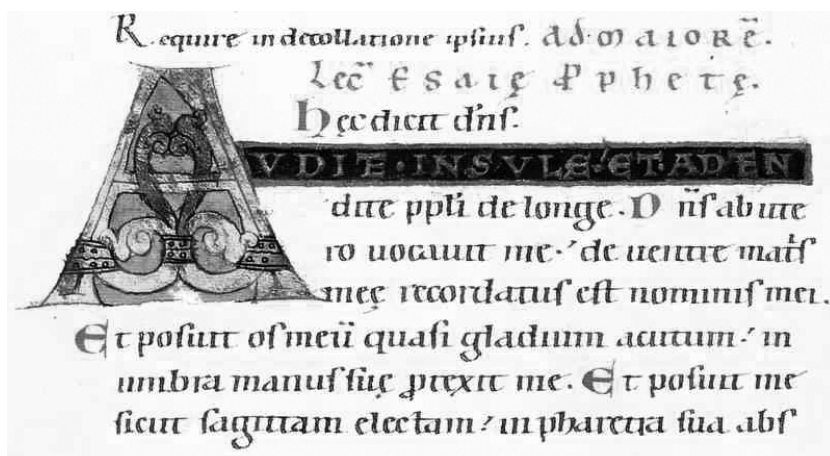 Require in decollatione ipsius. AD MAIOREˉ.
Lecˉ Esaię ꝓphetę.
Hęc dicit dn̄s.
AVDITE · INSVLĘ · ET · ADTEN
dite ppl̄i de longe. Dn̄s ab ute
ro uocauit me · de uentre matris
meę recordatus est nominis mei.
Et posuit os meū quasi gladium acutum : in
umbra manus suę ꝓtexit me. Et posuit me
sicut sagittam electam : in pharetra sua abs